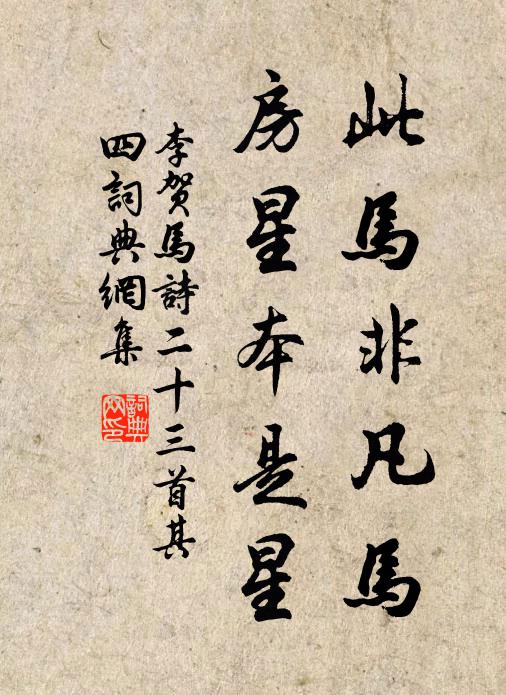 此馬非凡馬
房星本是星
李賀馬詩二十三首其
四詞典網集
詞典网印